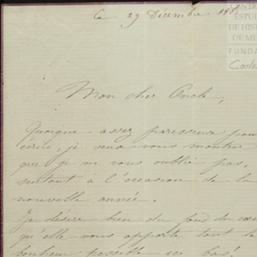 Ce 29 Décembre 188
Mon cher Oncle,
Quoique assez paresseux pour
écrire, je veux vous montrer
que je ne vous oublie pas,
surtout à l'occasion de la
nouvelle année.
Je désire bien du fond du cœur
qu'elle vous apporte tout le
bonheur possible
ESTU
DE HIS
DE M
FUNDA